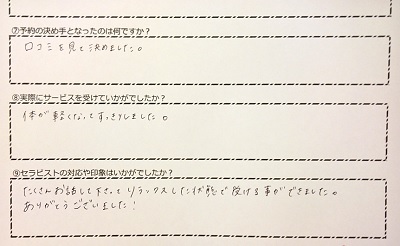 ⑦予約の決め手となったのは何ですか？
口コミを見て決めました。
⑧実際にサービスを受けていかがでしたか？
体が軽くなってすっきりしました。
⑨セラピストの対応や印象はいかがでしたか？
たくさんお話して下さってリラックスした状態で受ける事ができました。
ありがとうございました！